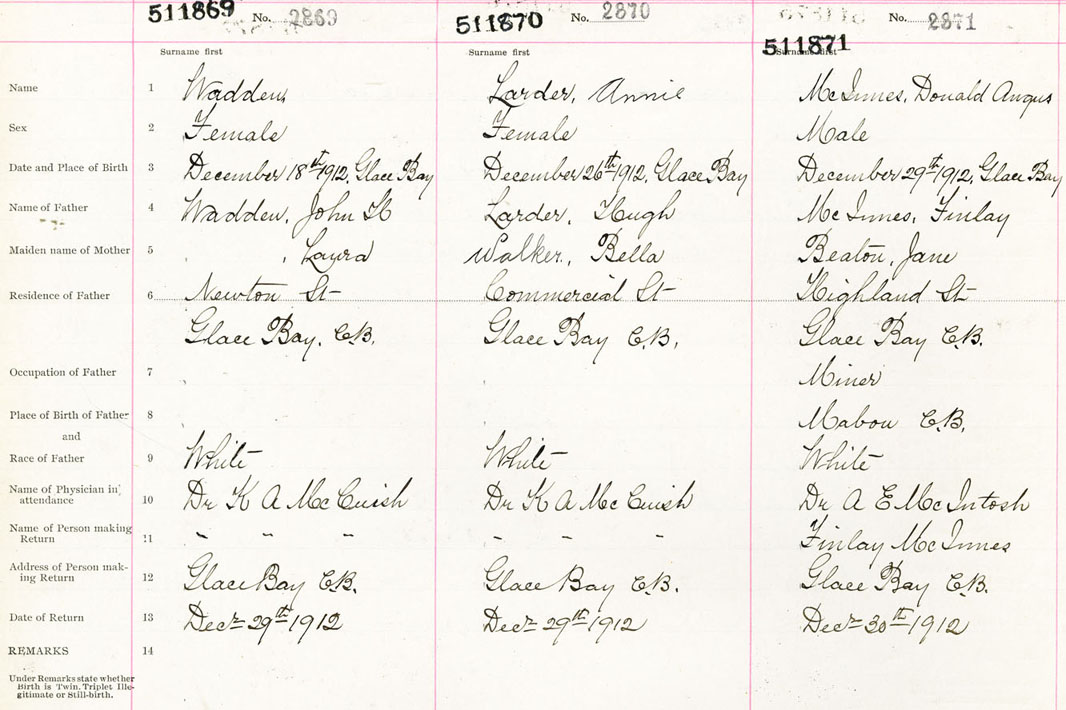 511869 No. 2869 511870 No. 2870 511871 No. 2871
Surname first Surname first Surname first
Name 1 Wadden, Larder, Annie McInnes, Donald Angus
Sex 2 Female Female Male
Date and Place of Birth 3 December 18th 1912, Glace Bay December 26th 1912, Glace Bay December 29th 1912, Glace Bay
Name of Father 4 Wadden, John Larder, Hugh McInnes, Finlay
Maiden name of Mother 5 , Laura Walker, Bella Beaton, Jane
Residence of Father 6 Newton St Commercial St Highland St
Glace Bay, C.B. Glace Bay C.B. Glace Bay C.B.
Occupation of Father 7 Miner
Place of Birth of Father 8 Mabou C.B.
and
Race of Father 9 White White White
Name of Physician in attendance 10 Dr K A McCuish Dr K A McCuish Dr A E McIntosh
Name of Person making Return 11 " " " " " " Finlay McInnes
Address of Person mak-
ing Return 12 Glace Bay C.B. Glace Bay C.B. Glace Bay C.B.
Date of Return 13 Decr 29th 1912 Decr 29th 1912 Decr 30th 1912
REMARKS 14
Under Remarks state whether
Birth is Twin, Triplet Ille-
gitimate or Still-birth.